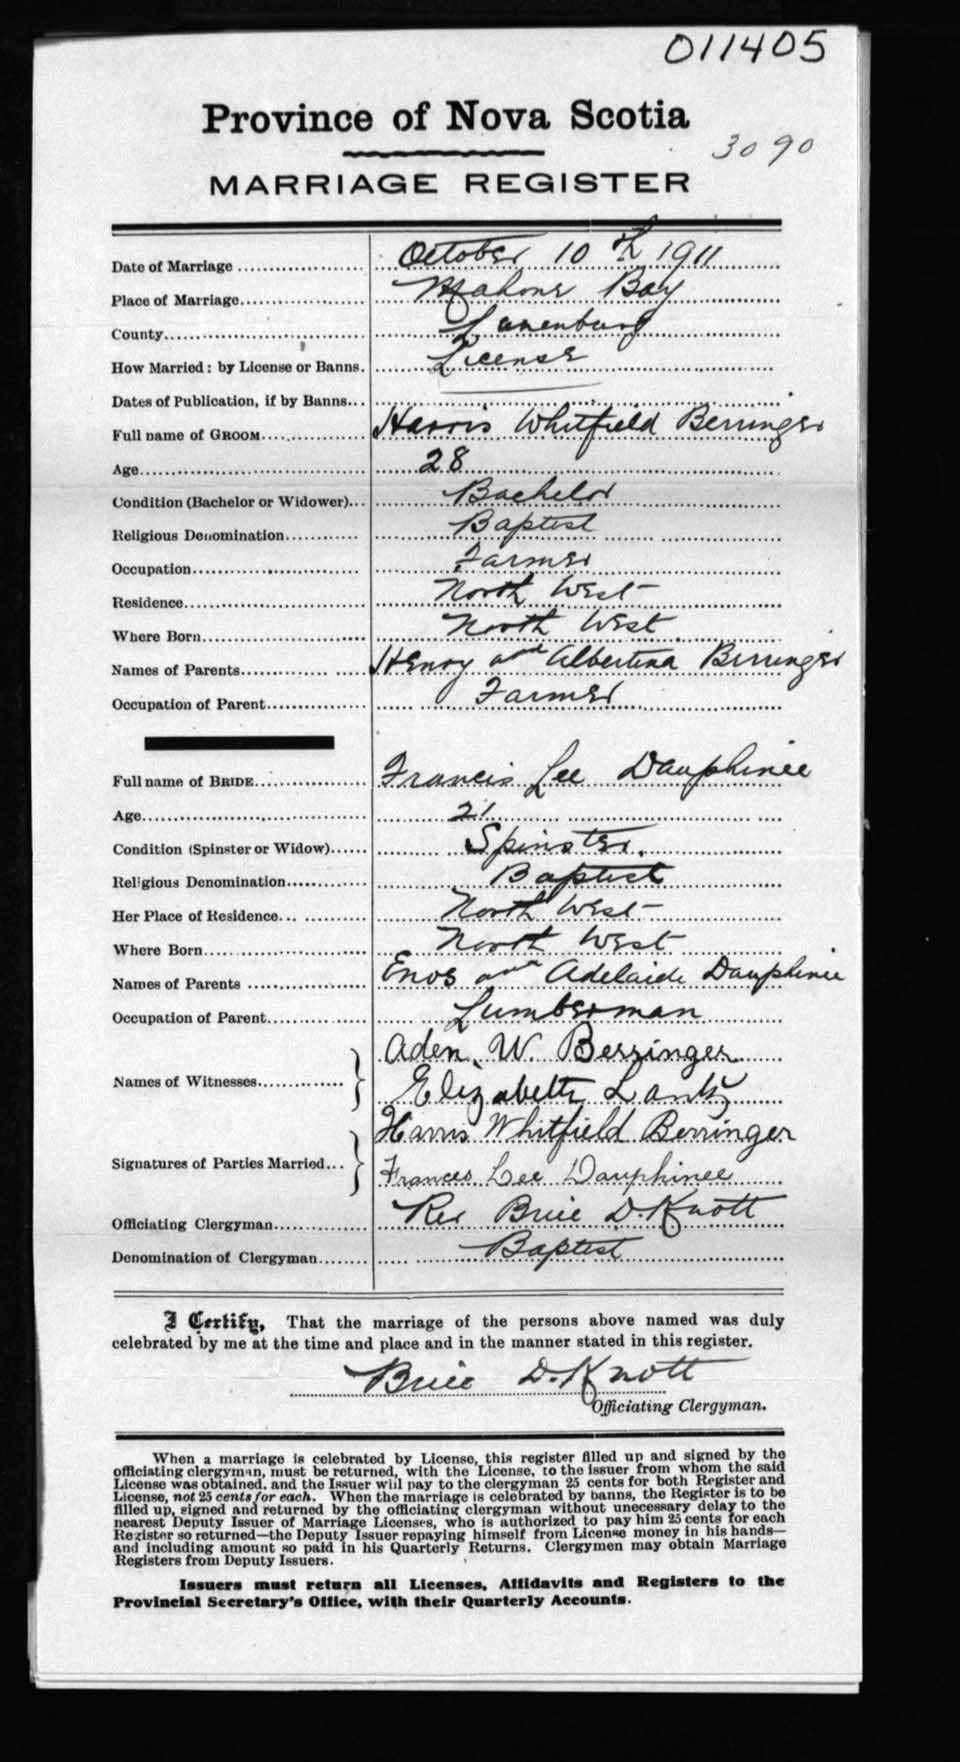 011405
Province of Nova Scotia
3090
MARRIAGE REGISTER
Date of Marriage October 10th 1911
Place of Marriage Mahone Bay
County Lunenburg
How Married: by License or Banns. License
Dates of Publication, if by Banns
Full name of GROOM Harris Whitfield Berringer
Age 28
Condition (Bachelor or Widower) Bachelor
Religious Denomination Baptist
Occupation Farmer
Residence North West
Where Born North West
Names of Parents Henry and Albertina Berringer
Occupation of Parent Farmer
Full name of BRIDE Francis Lee Dauphinee
Age 21
Condition (Spinster or Widow) Spinster.
Religious Denomination Baptist
Her Place of Residence North West
Where Born North West
Names of Parents Enos and Adelaide Dauphinee
Occupation of Parent Lumberman
Aden W. Berringer
Names of Witnesses
Elizabeth Lantz
Harris Whitfield Berringer
Signatures of Parties Married
Frances Lee Dauphinee
Officiating Clergyman Rev Brice D. Knott
Denomination of Clergyman Baptist
I Certify, That the marriage of the persons above named was duly
celebrated by me at the time and place and in the manner stated in this register.
Brice D. Knott
Officiating Clergyman.
When a marriage is celebrated by License, this register filled up and signed by the
officiating clergyman, must be returned, with the License, to the issuer from whom the said
License was obtained, and the Issuer will pay to the clergyman 25 cents for both Register and
License, not 25 cents for each. When the marriage is celebrated by banns, the Register is to be
filled up, signed and returned by the officiating clergyman without unnecessary delay to the
nearest Deputy Issuer of Marriage Licenses, who is authorized to pay him 25 cents for each
Register so returned—the Deputy Issuer repaying himself from License money in his hands—
and including amount so paid in his Quarterly Returns. Clergymen may obtain Marriage
Registers from Deputy Issuers.
Issuers must return all Licenses, Affidavits and Registers to the
Provincial Secretary's Office, with their Quarterly Accounts.